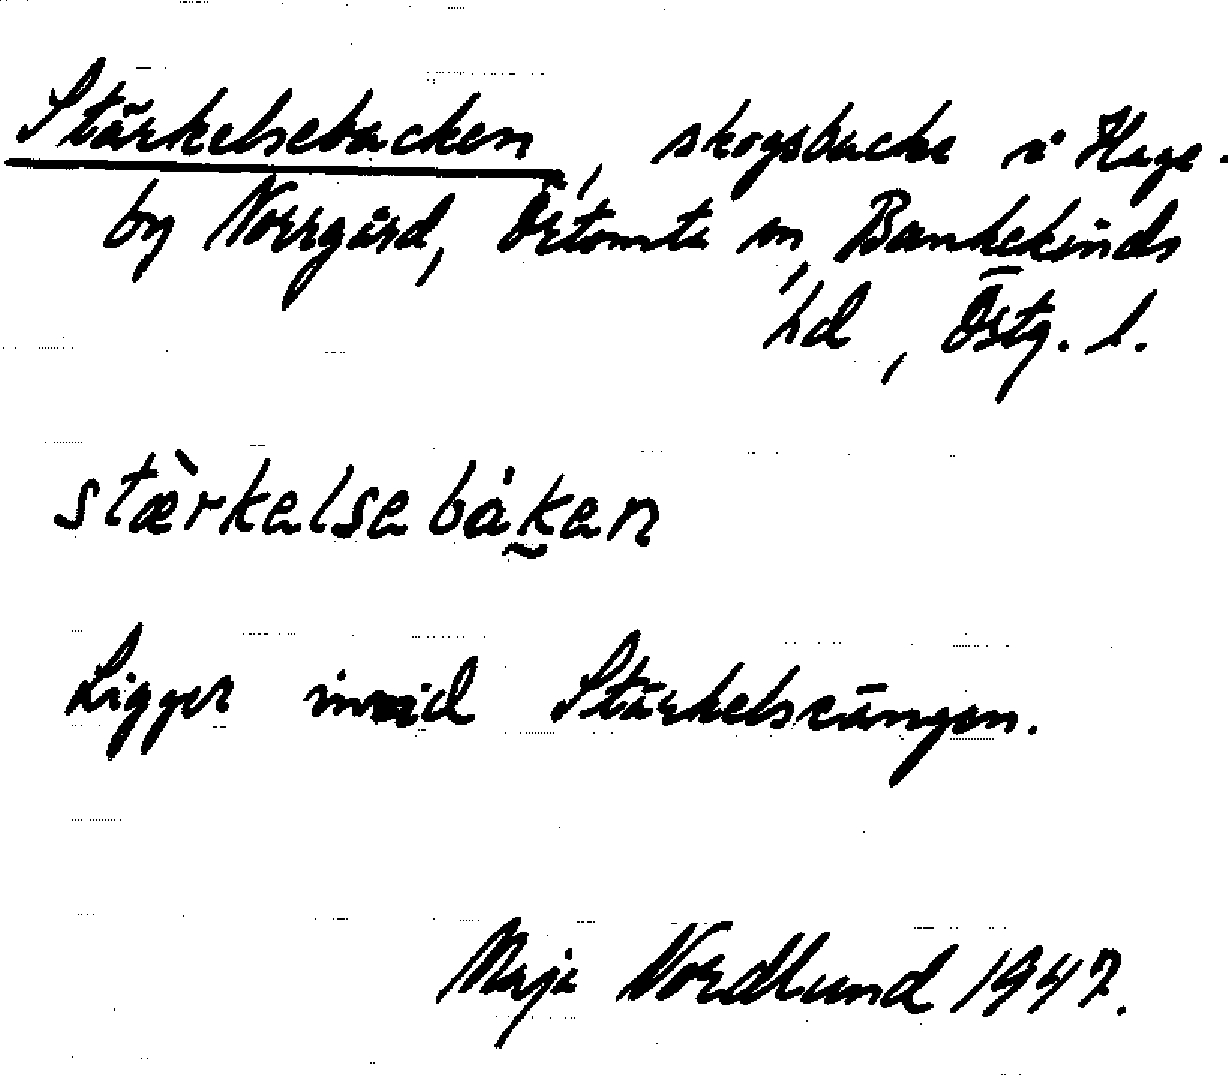 Stärkelsebacken, skogsbacke i Hage-
by Norrgård, Örtomta sn, Bankekinds
hd, Östg. l.
stæ̀rkelsebáken
Ligger invid Stärkelseängen.
Maja Nordlund 1947.